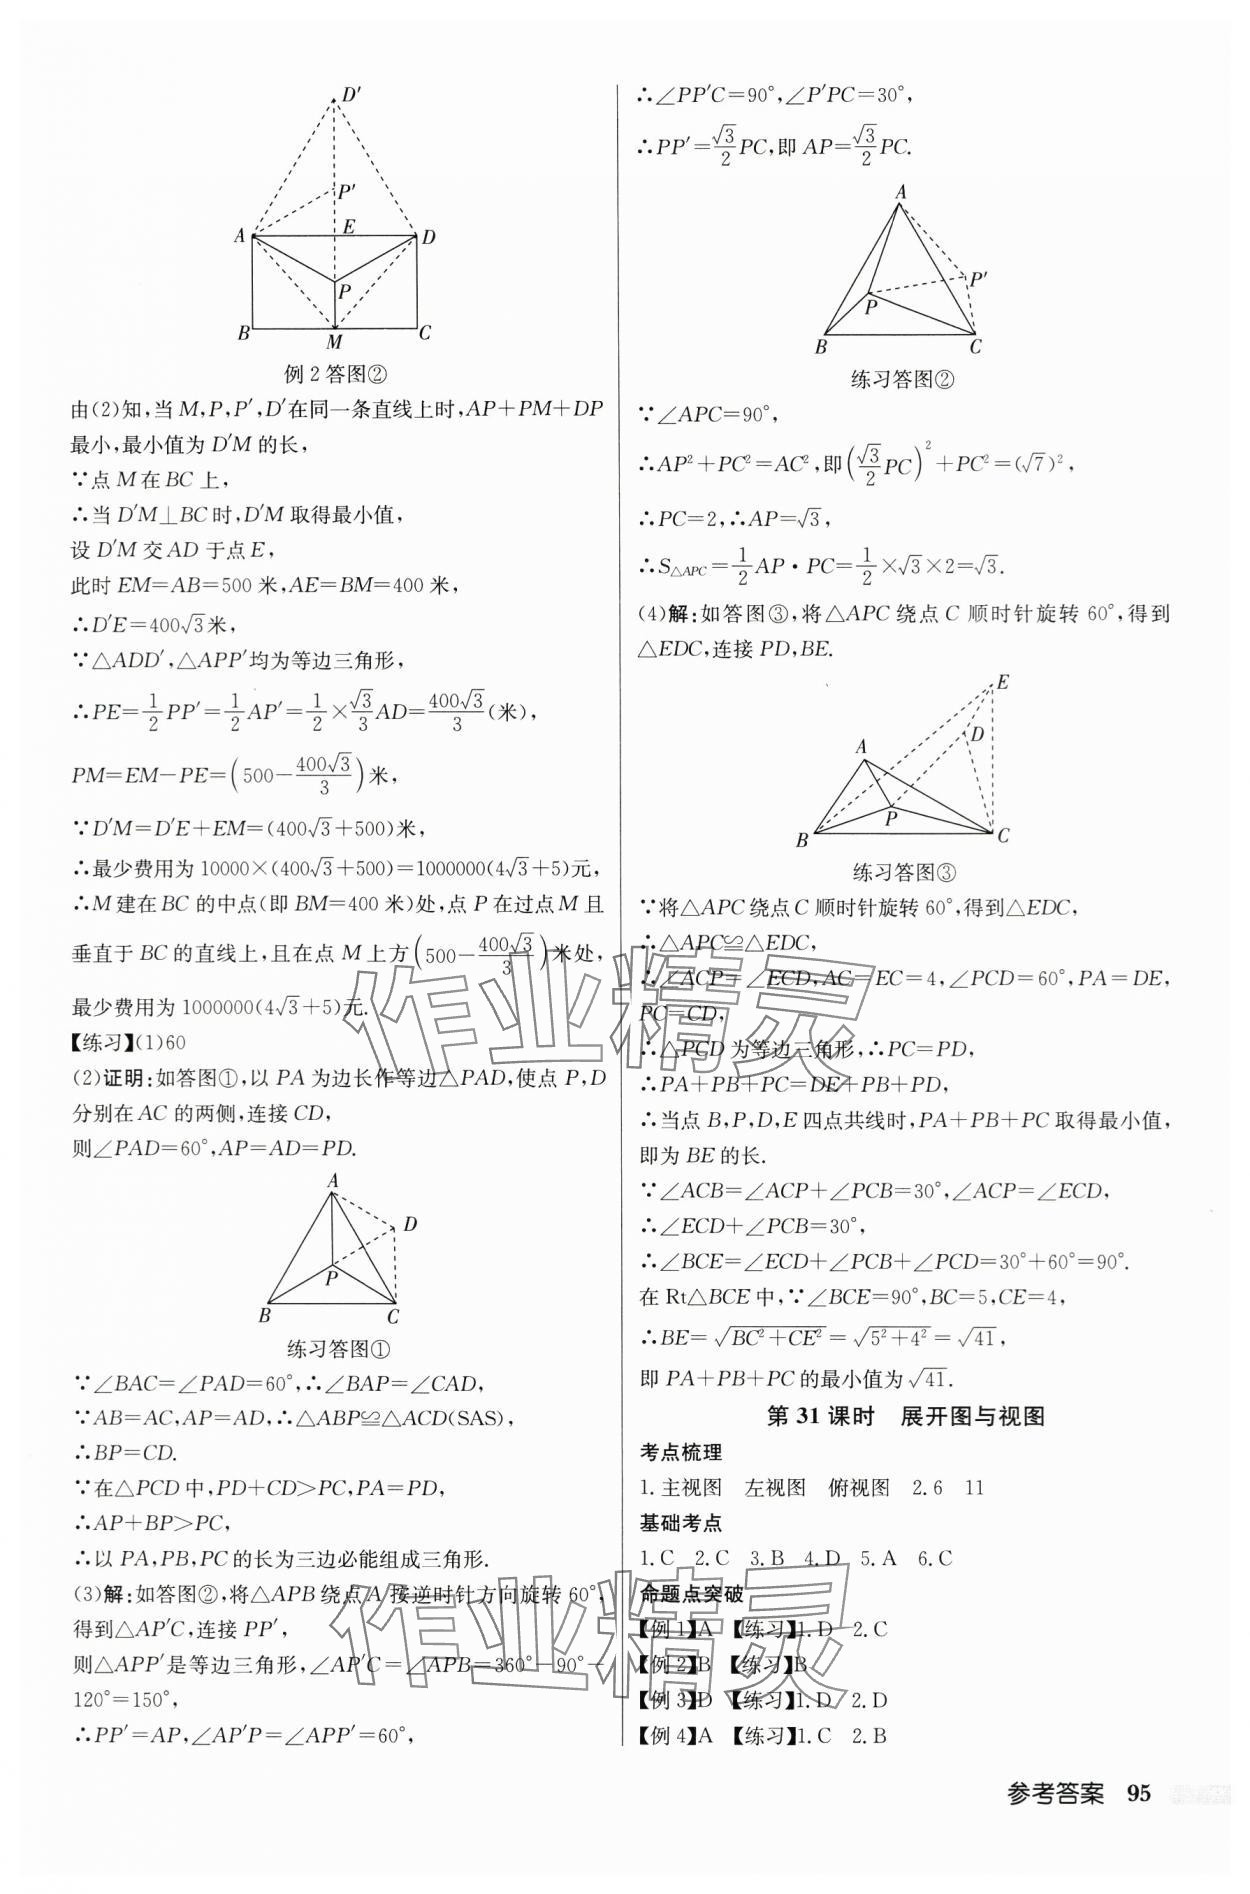 D′
P′
A E D
P
B M C
例2答图②
由(2)知,当M,P,P′,D′在同一条直线上时,AP+PM+DP
最小,最小值为D′M的长,
∵点M在BC上,
∴当D′M⊥BC时,D′M取得最小值,
设D′M交AD于点E,
此时EM=AB=500米,AE=BM=400米,
∴D′E=400√3米,
∵△ADD′,△APP′均为等边三角形,
∴PE=1/2PP′=1/2AP′=1/2×√3/3AD=400√3/3(米),
PM=EM−PE=(500−400√3/3)米,
∵D′M=D′E+EM=(400√3+500)米,
∴最少费用为10000×(400√3+500)=1000000(4√3+5)元,
∴M建在BC的中点(即BM=400米)处,点P在过点M且
垂直于BC的直线上,且在点M上方(500−400√3/3)米处,
最少费用为1000000(4√3+5)元.
【练习】(1)60
(2)证明:如答图①,以PA为边长作等边△PAD,使点P,D
分别在AC的两侧,连接CD,
则∠PAD=60°,AP=AD=PD.
A
D
P
B C
练习答图①
∵∠BAC=∠PAD=60°,∴∠BAP=∠CAD,
∵AB=AC,AP=AD,∴△ABP≌△ACD(SAS),
∴BP=CD.
∵在△PCD中,PD+CD>PC,PA=PD,
∴AP+BP>PC,
∴以PA,PB,PC的长为三边必能组成三角形.
(3)解:如答图②,将△APB绕点A按逆时针方向旋转60°,
得到△AP′C,连接PP′,
则△APP′是等边三角形,∠AP′C=∠APB=360°−90°−
120°=150°,
∴PP′=AP,∠AP′P=∠APP′=60°,
∴∠PP′C=90°,∠P′PC=30°,
∴PP′=√3/2PC,即AP=√3/2PC.
A
P′
P
B C
练习答图②
∵∠APC=90°,
∴AP²+PC²=AC²,即(√3/2PC)²+PC²=(√7)²,
∴PC=2,∴AP=√3,
∴S△APC=1/2AP·PC=1/2×√3×2=√3.
(4)解:如答图③,将△APC绕点C顺时针旋转60°,得到
△EDC,连接PD,BE.
E
D
A
P
B C
练习答图③
∵将△APC绕点C顺时针旋转60°,得到△EDC,
∴△APC≌△EDC,
∴∠ACP=∠ECD,AC=EC=4,∠PCD=60°,PA=DE,
PC=CD,
∴△PCD为等边三角形,∴PC=PD,
∴PA+PB+PC=DE+PB+PD,
∴当点B,P,D,E四点共线时,PA+PB+PC取得最小值,
即为BE的长.
∵∠ACB=∠ACP+∠PCB=30°,∠ACP=∠ECD,
∴∠ECD+∠PCB=30°,
∴∠BCE=∠ECD+∠PCB+∠PCD=30°+60°=90°.
在Rt△BCE中,∵∠BCE=90°,BC=5,CE=4,
∴BE=√(BC²+CE²)=√(5²+4²)=√41,
即PA+PB+PC的最小值为√41.
第31课时 展开图与视图
考点梳理
1.主视图 左视图 俯视图 2.6 11
基础考点
1.C 2.C 3.B 4.D 5.A 6.C
命题点突破
【例1】A 【练习】1.D 2.C
【例2】B 【练习】B
【例3】D 【练习】1.D 2.D
【例4】A 【练习】1.C 2.B
参考答案 95
作业精灵
作业精灵